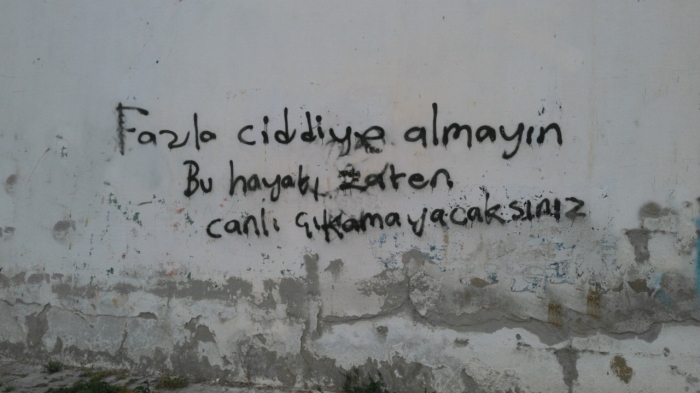 Fazla ciddiye almayın
Bu hayatı zaten
canlı çıkamayacaksınız